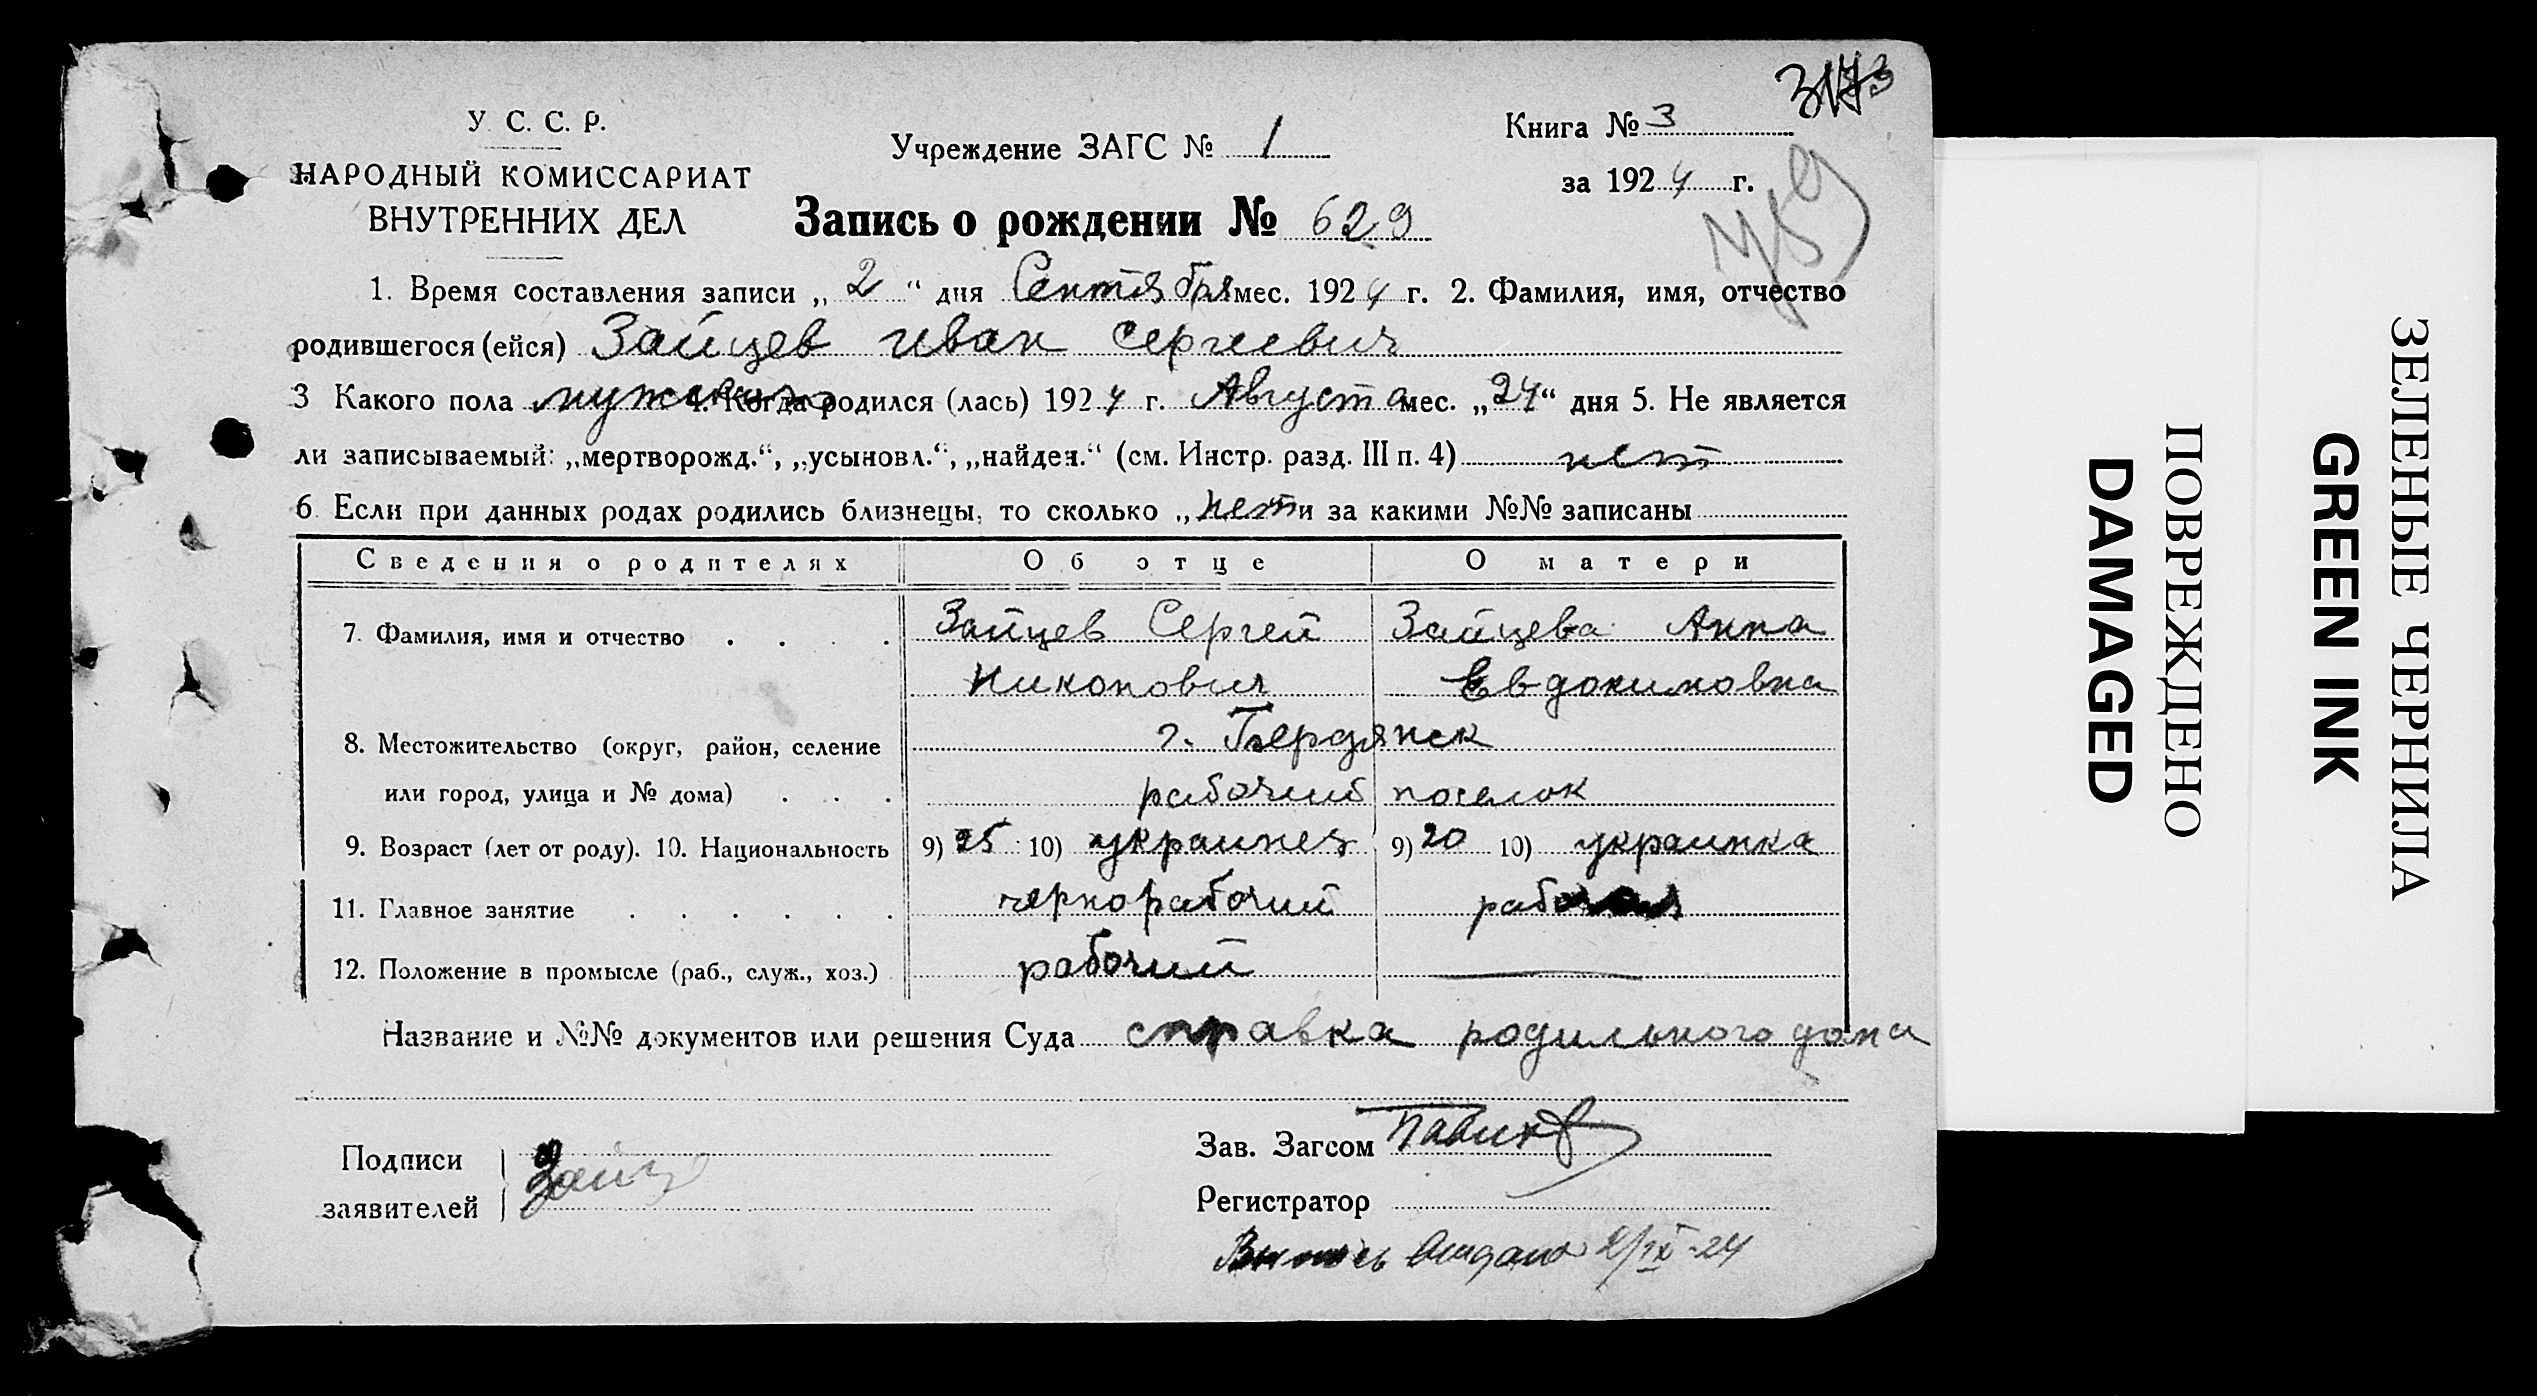 У. С. С. Р.
НАРОДНЫЙ КОМИССАРИАТ
ВНУТРЕННИХ ДЕЛ
Учреждение ЗАГС № 1
Книга № 3
за 1924 г.
Запись о рождении № 629
1. Время составления записи „ 2 “ дня Сентября мес. 1924 г. 2. Фамилия, имя, отчество
родившегося (ейся) Зайцев Иван Сергеевич
3 Какого пола мужского 4. Когда родился (лась) 1924 г. Августа мес. „24“ дня 5. Не является
ли записываемый: „мертворожд.“, „усыновл.“, „найден.“ (см. Инстр. разд. III п. 4) нет
6. Если при данных родах родились близнецы, то сколько „ нет и за какими №№ записаны
Сведения о родителях Об отце О матери
7. Фамилия, имя и отчество . . . . Зайцев Сергей Зайцева Анна
Никонович Евдокимовна
8. Местожительство (округ, район, селение г. Бердянск
или город, улица и № дома) . . . рабочий поселок
9. Возраст (лет от роду). 10. Национальность 9) 25 10) украинец 9) 20 10) украинка
11. Главное занятие . . . . . . чернорабочий рабочая
12. Положение в промысле (раб., служ., хоз.) рабочий
Название и №№ документов или решения Суда справка родильного дома
Подписи
заявителей
Зайц
Зав. Загсом
Регистратор
Выпись выдана 2/IX-24
ПОВРЕЖДЕНО
DAMAGED
ЗЕЛЕНЫЕ ЧЕРНИЛА
GREEN INK